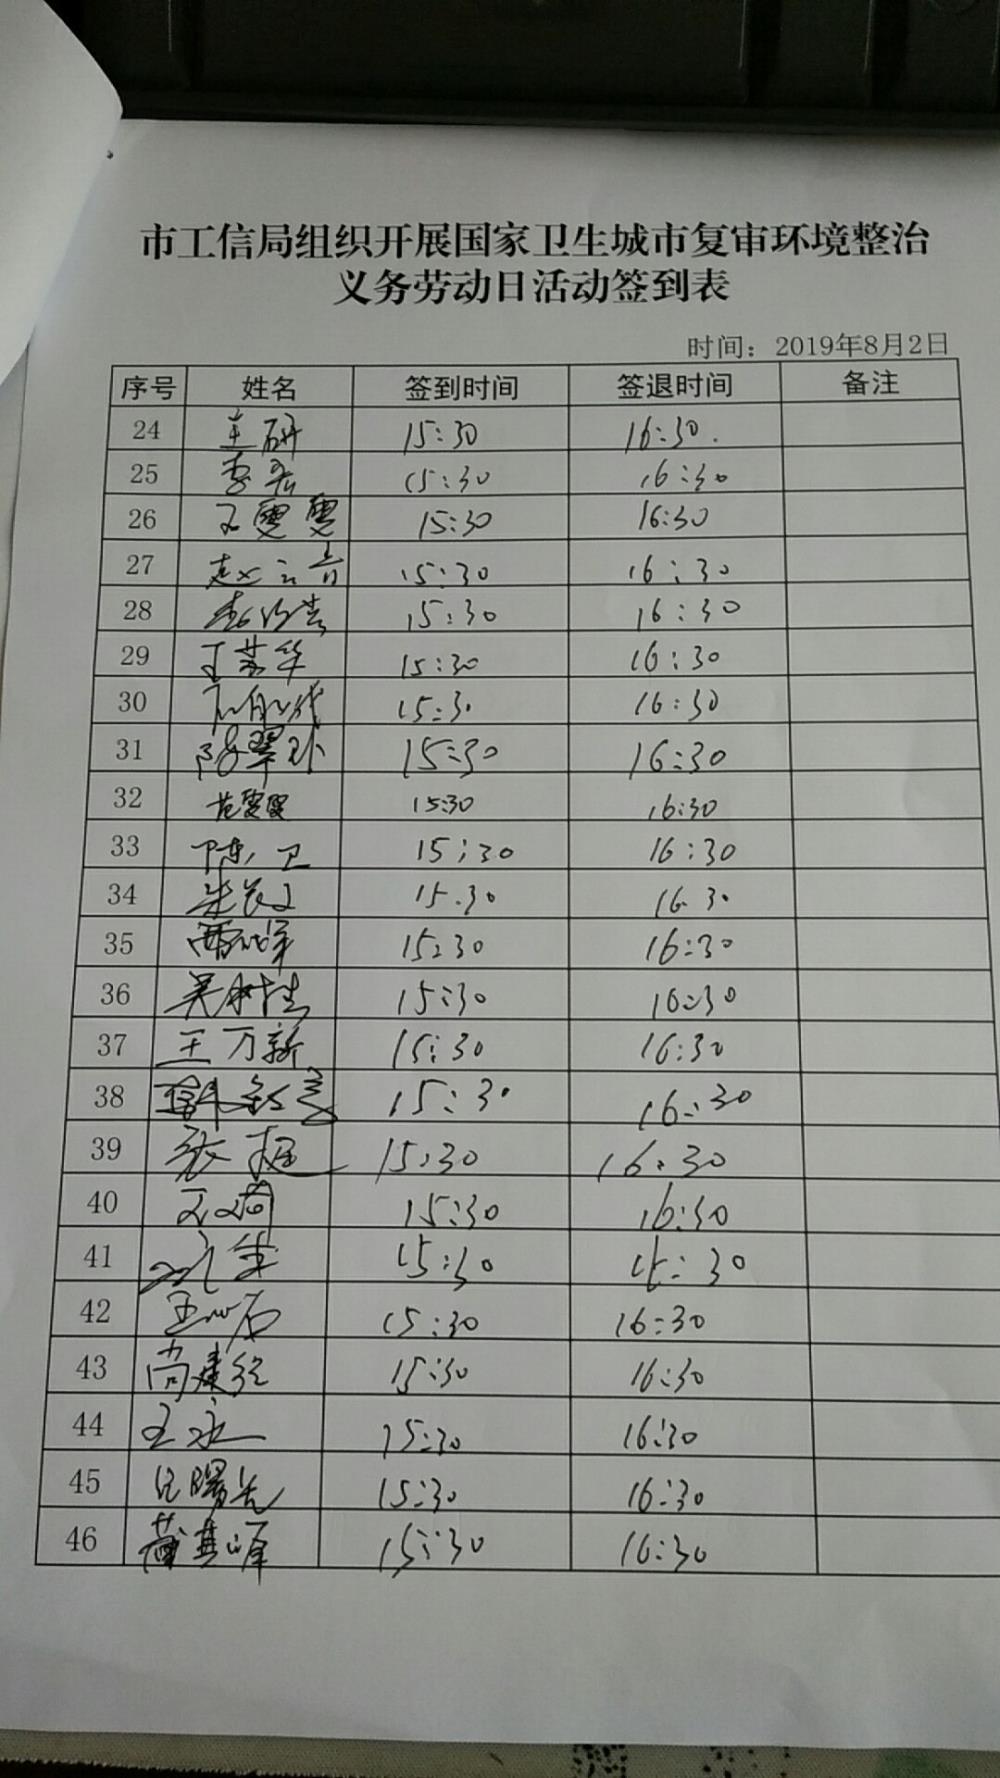 市工信局组织开展国家卫生城市复审环境整治
义务劳动日活动签到表
时间：2019年8月2日
序号 姓名 签到时间 签退时间 备注
24 王研 15:30 16:30.
25 李宏 15:30 16:30
26 王雯雯 15:30 16:30
27 赵云 15:30 16:30
28 15:30 16:30
29 丁苏华 15:30 16:30
30 15:30 16:30
31 翠 15:30 16:30
32 范雯雯 15:30 16:30
33 陈卫 15:30 16:30
34 朱 15.30 16.30
35 15:30 16:30
36 吴树 15:30 16:30
37 王万新 15:30 16:30
38 15:30 16:30
39 张挺 15:30 16:30
40 王 15:30 16:30
41 15:30 16:30
42 王 15:30 16:30
43 尚建 15:30 16:30
44 王永 15:30 16:30
45 曙光 15:30 16:30
46 其峰 15:30 16:30